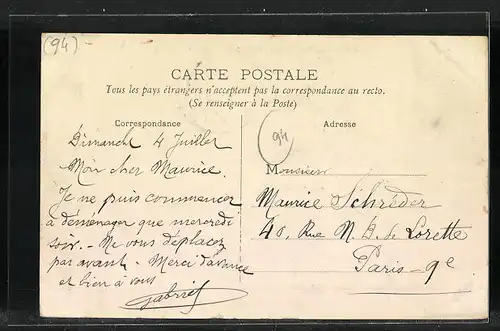 (94)-
CARTE POSTALE
Tous les pays étrangers n'acceptent pas la correspondance au recto.
(Se renseigner à la Poste)
Correspondance
Dimanche 4 Juillet
Mon cher Maurice.
Je ne puis commencer
à déménager que mercredi
soir. - Ne vous déplacez
pas avant. - Merci d'avance
et bien à vous
Gabriel
Adresse
94
Monsieur
Maurice Schréder
40, Rue N. D. de Lorette
Paris - 9e